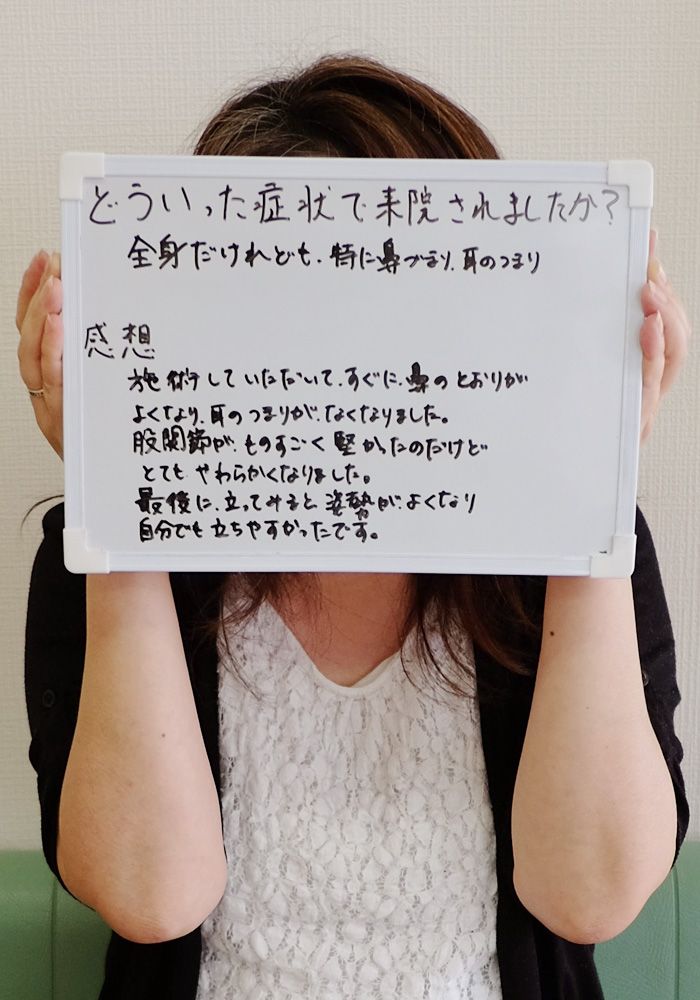 どういった症状で来院されましたか？
全身だけれども、特に鼻づまり、耳のつまり
感想
施術していただいて、すぐに、鼻のとおりが
よくなり、耳のつまりが、なくなりました。
股関節が、ものすごく堅かったのだけど
とても、やわらかくなりました。
最後に、立ってみると姿勢が、よくなり
自分でも立ちやすかったです。